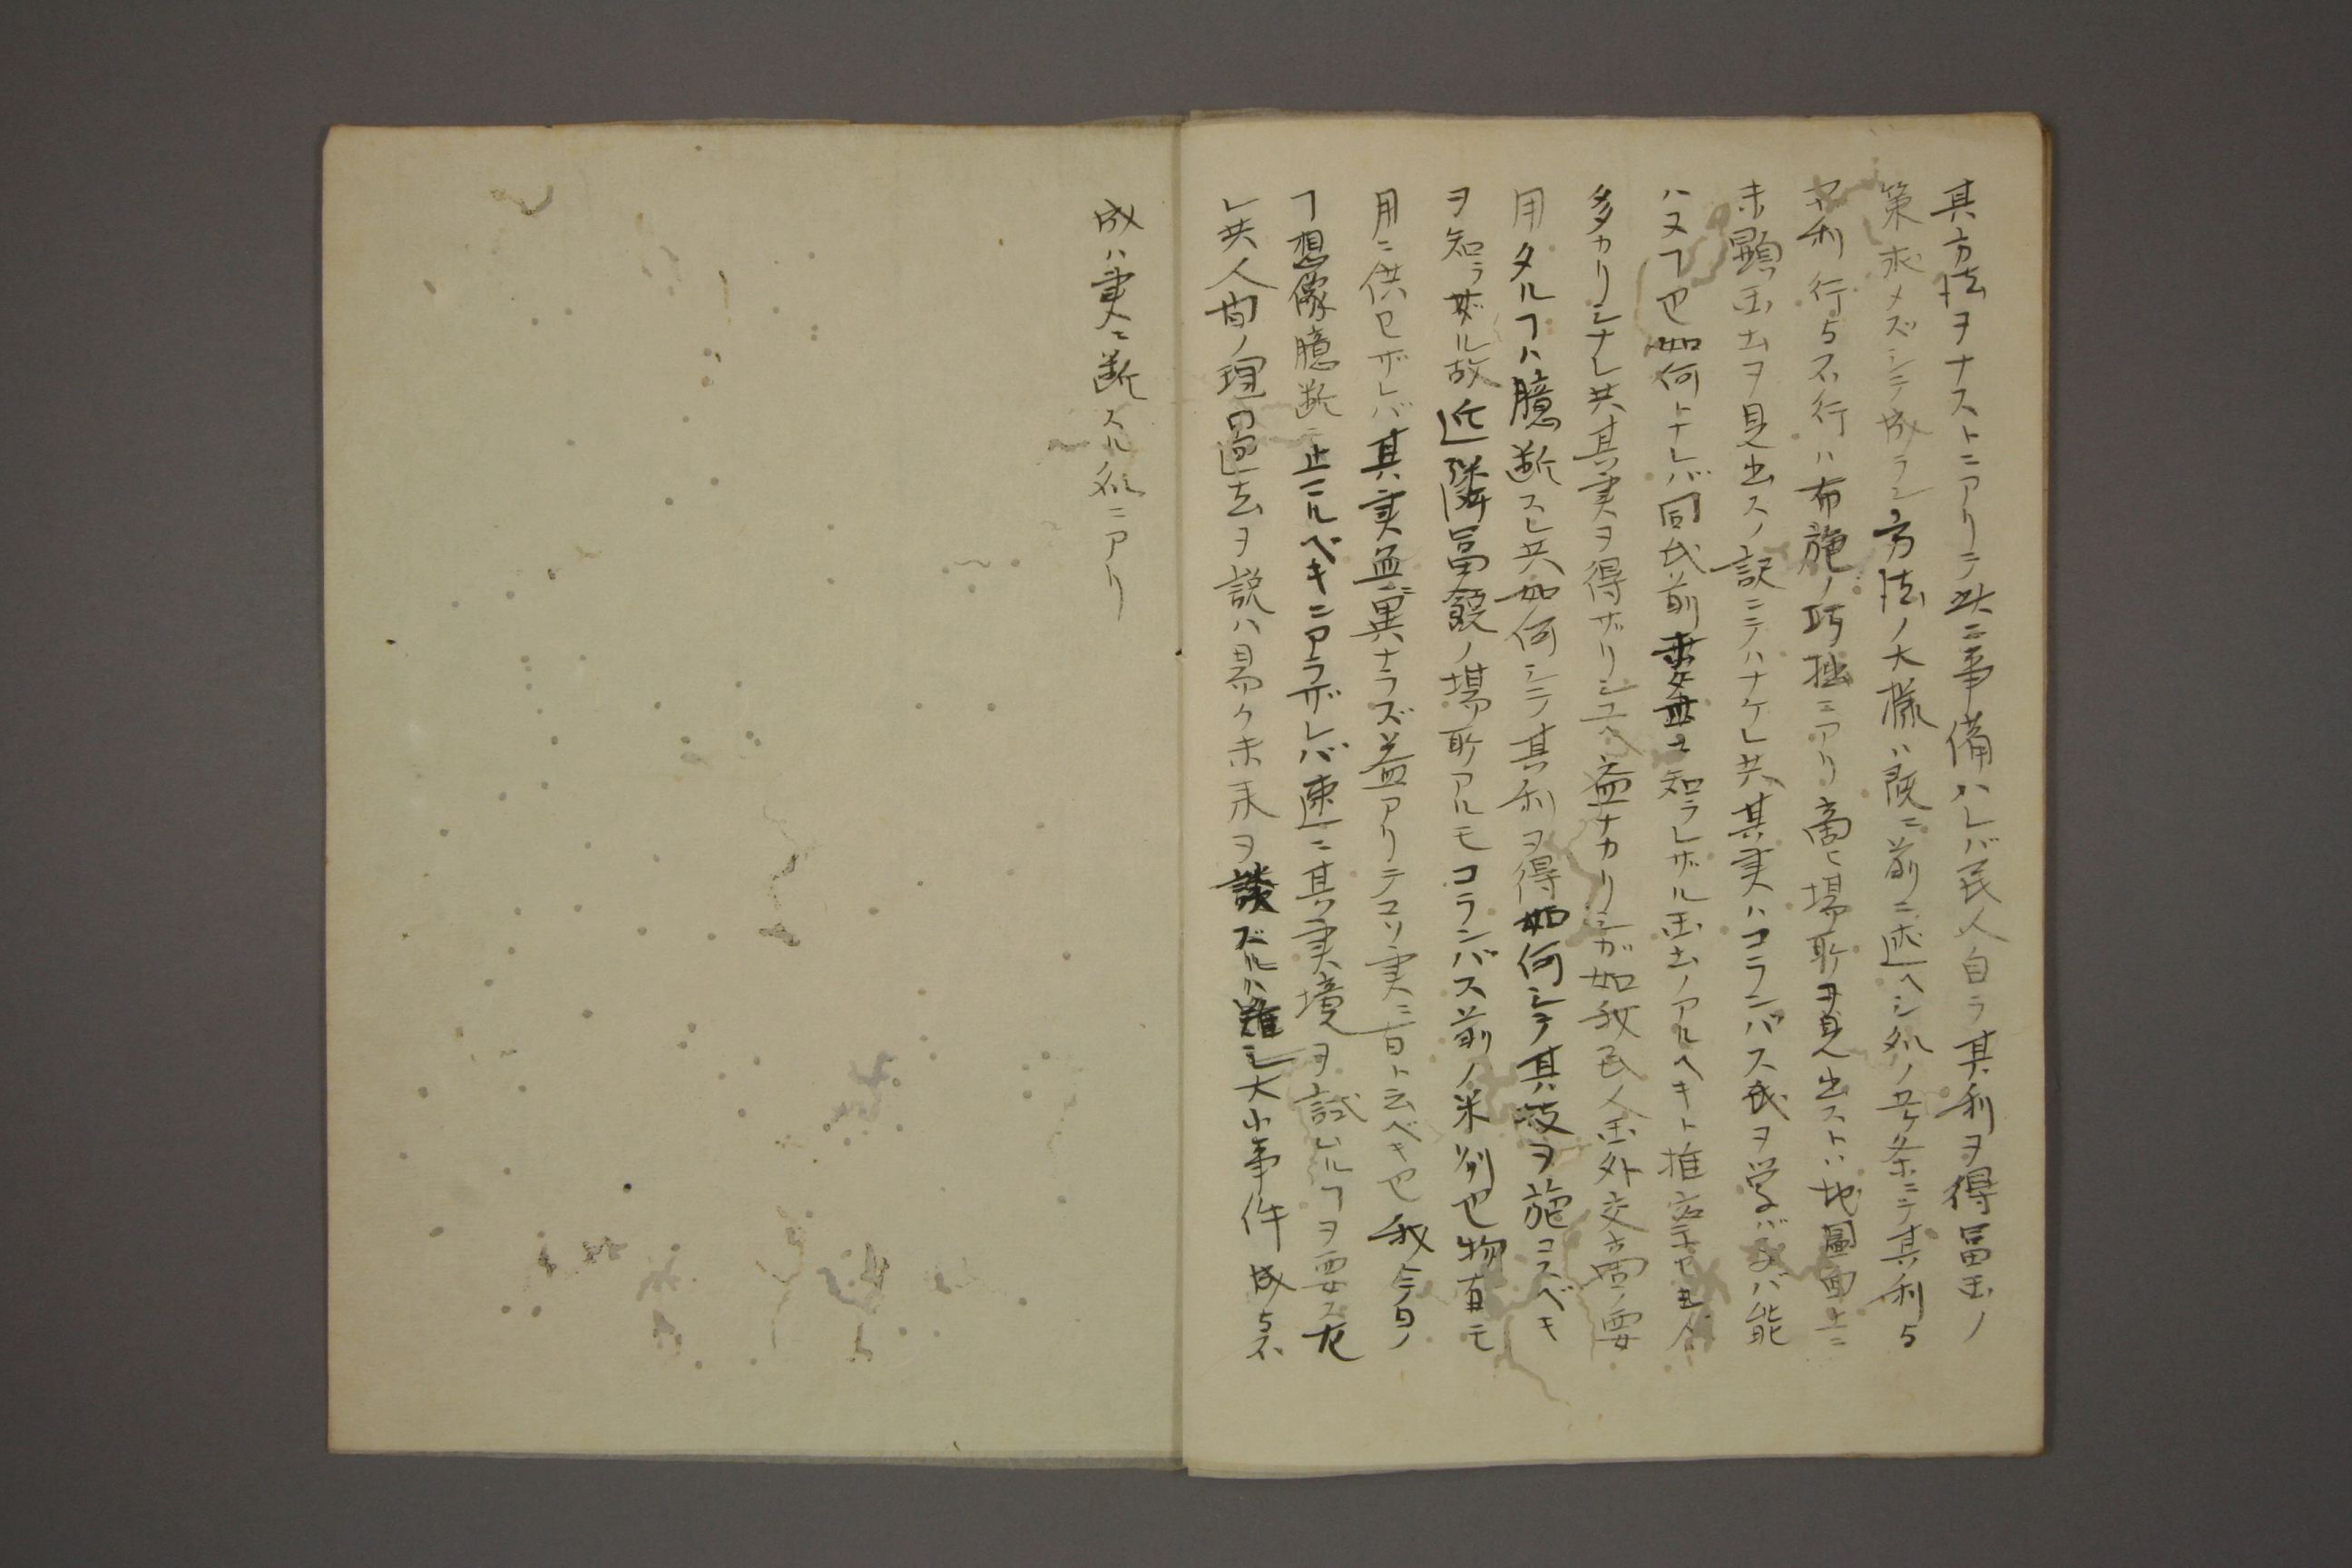 其方法ヲナストニアリテ此二事備ハレバ民人自ラ其利ヲ得冨国ノ
策求メズシテ成ラン方法ノ大様ハ既ニ前ニ述ヘシ処ノ五ケ条ニテ其利与
不利行与不行ハ布施ノ巧拙ニアリ商ヒ場所ヲ見出ストハ地圖面上ニ
未顕国土ヲ見出スノ訳ニテハナケレ共其実ハコランバス氏ヲ学バネバ能
ハヌヿ也如何トナレバ同氏前ニ知ラレザル国土ノアルヘキト推察セシ人
多カリシナレ共其実ヲ得ザリシユヘ益ナカリシガ如我民人国外交商ノ要
用タルヿハ臆断スレ共如何シテ其利ヲ得如何シテ其技ヲ施コスベキ
ヲ知ラザル故近隣冨饒ノ場所アルモコランバス前ノ米列也物有モ
用ニ供セザレバ其実無ニ異ナラズ益アリテコソ実ニ有ト云ベキ也我今日ノ
ヿ想像臆断ニ止ルベキニアラザレバ速ニ其実境ヲ試ムルヿヲ要ス尤
レ共人間ノ理過去ヲ説ハ易ク未来ヲ談ズルハ難シ大小事件成与不
成ハ実ニ断スル処ニアリ